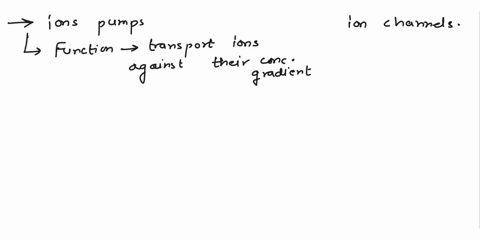 → ions pumps ion channels.
↳ Function → transport ions
against their conc.
gradient